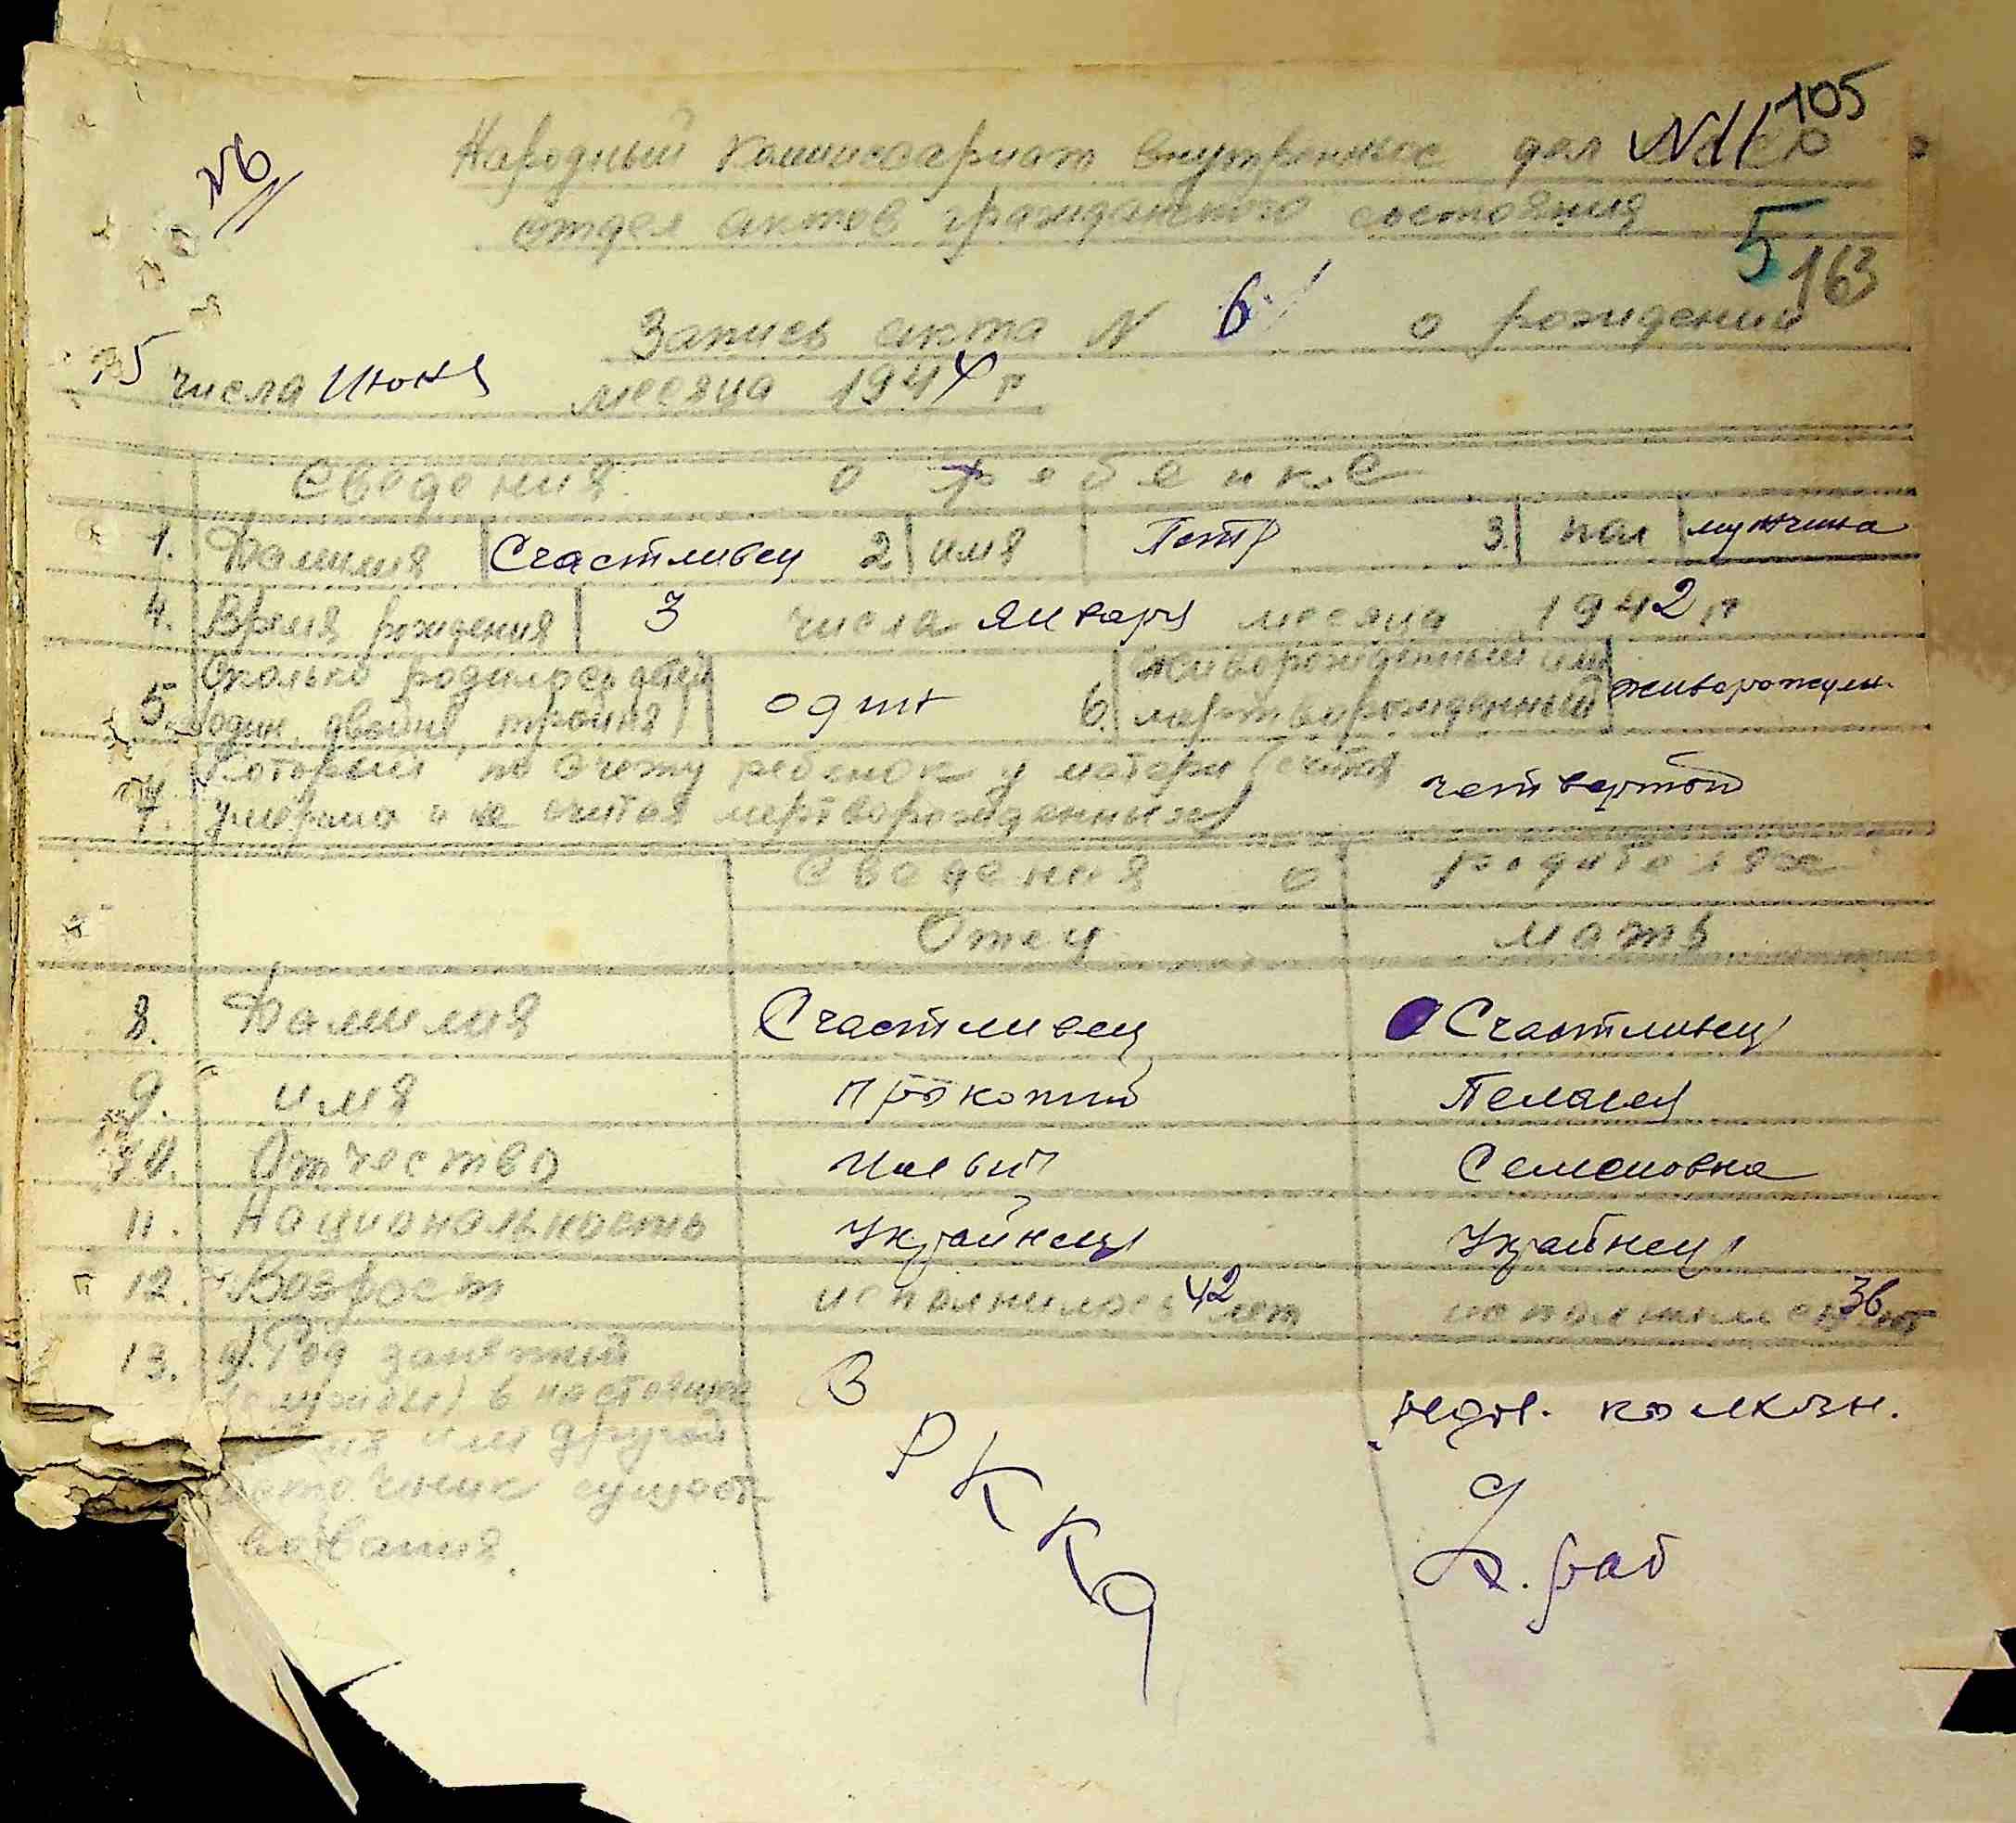 105
N6
Народный комиссариат внутренных дел N11
отдел актов гражданского состояния
5
163
Запись акта N 6 о рождении
15 числа Июня месяца 1944 г
Сведения о ребенке
1. Фамилия Счастливец 2. имя Петр 3. пол мужчина
4. Время рождения 3 числа января месяца 1942 г
5. Сколько родилось детей (один, двойня, тройня) один 6. живорожденный или мертворожденный живорожден.
7. Который по счету ребенок у матери (считая
умерших и не считая мертворожденных) четвертой
Сведения о родителях
Отец мать
8. Фамилия Счастливец Счастливец
9. имя Прокопий Пелагея
10. Отчество Семеновна
11. Национальность Украйнец Украйнец
12. Возраст исполнилось 42 лет исполнилось 36 лет
13. а) Род занятий В рядов. колхозн.
(службы) в настоящее
или другой РККА
источник сущест- раб
вования.